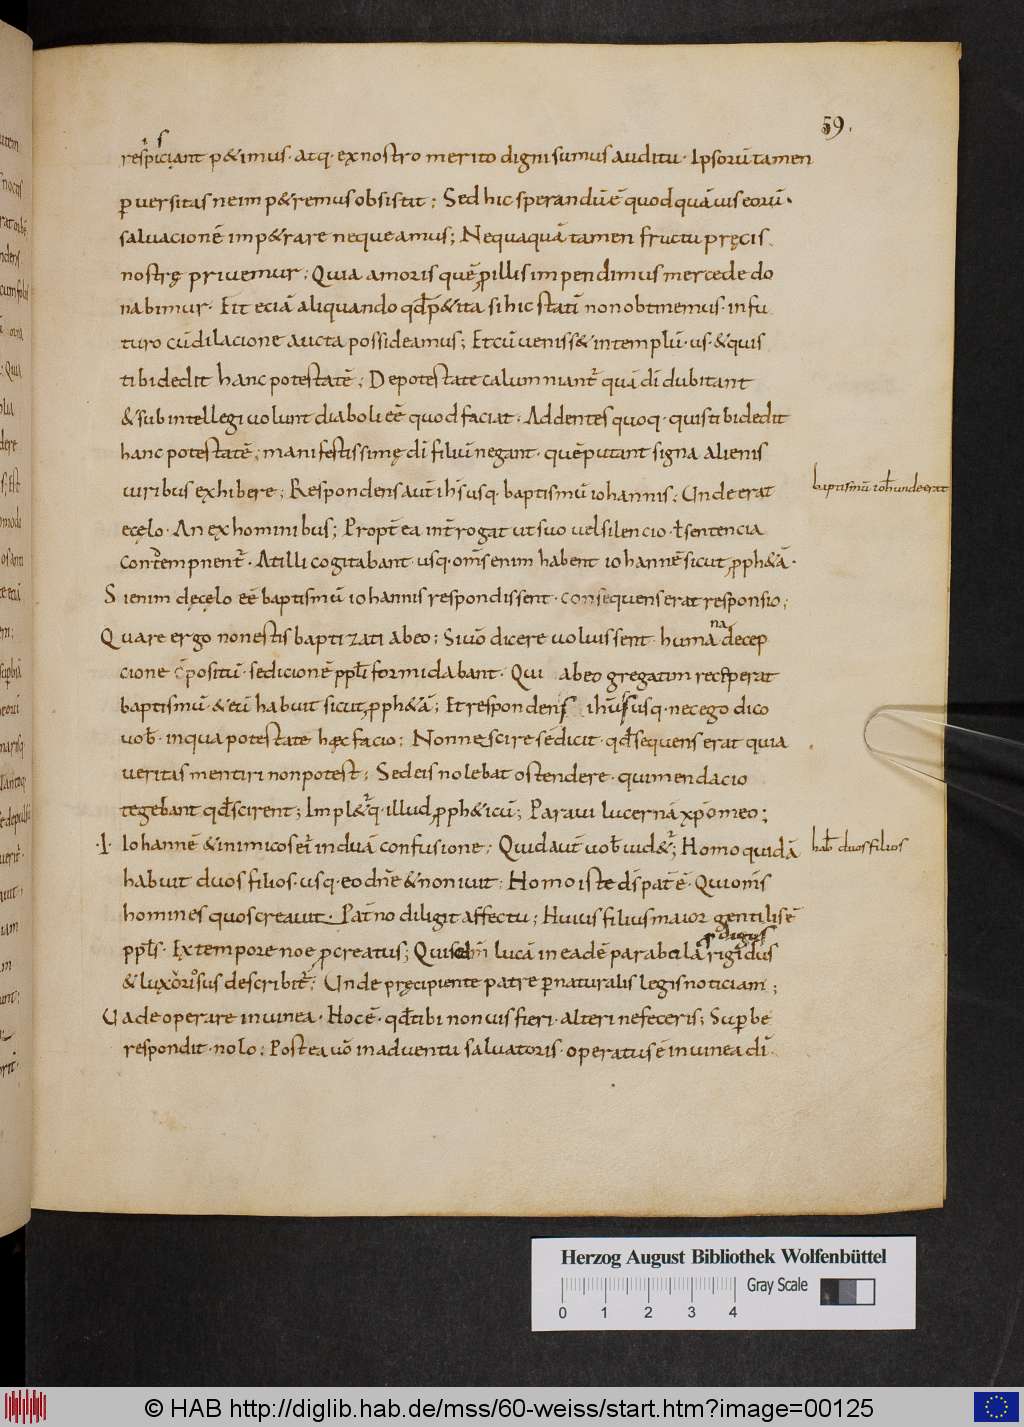 59.
respiciant p&imus · atq· ex nostro merito digni sumus auditu · Ipsorū tamen
ꝑversitas ne imp&remus obsistit ; Sed hic sperandū ē quod quāuis eorū ·
saluacionē imp&rare nequeamus ; Nequaquā tamen fructu pręcis
nostrę privemur ; Quia amoris quē ꝓ illis impendimus mercede do
nabimur · Fit eciā aliquando qđ p&ita si hic statī non obtinemus · in fu
turo cū dilacione aucta possideamus ; Et cū veniss& in templū · us · & quis
tibi dedit hanc potestatē ; De potestate calumniant̄ quā dī dubitant
& subintellegi uolunt diaboli eē quod faciat · Addentes quoq· quis tibi dedit
hanc potestatē ; manifestissimę dī filiū negant · quē putant signa alienis
uiribus exhibere ; Respondens aut̄ ihs usq· baptismū iohannis ; Unde erat
baptismū ioħ unde erat
e cęlo · An ex hominibus ; Propt̄ ea int̄rogat ut suo uel silencio · ł sentencia
contempnent̄ · At illi cogitabant · usq· om̄s enim habent iohannē sicut ꝓph&ā ·
Si enim de cęlo eē baptismū iohannis respondissent · consequens erat responsio ;
Quare ergo non estis baptizati ab eo ; Si uō dicere uoluissent · humana decep
cione cpositū · sedicionē ppłi formidabant · Qui ab eo gregatim receperat
baptismū · & eū habuit sicut ꝓph&ā ; Et respondens ihu usq· nec ego dico
uoƀ · in qua potestate hęc facio ; Non nescire se dicit · qđ sequens erat quia
veritas mentiri non potest ; Sed eis nolebat ostendere · qui mendacio
tegebant qđ scirent ; Impl&q· illud ꝓph&icū ; Paravi lucernā xpō meo ;
·I· Iohannē & inimicos ei induā confusione ; Quid aut̄ uoƀ uid&̄ ; Homo quidā
hab duos filios
habuit duos filios · usq· eo dn̄e & non iuit ; Homo iste dś pat̄ ē · Qui om̄s
homines quos creauit · Pat̄no diligit affectu ; Huius filius maior gentilis ē
ppłs · Ex tempore noe ꝓcreatus ; Qui lucā in eadē parabola
& luxoriosus describit̄ ; Unde pręcipiente patre ꝑ naturalis legis noticiam ;
Vade operare in uinea · Hoc ē · qđ tibi non uis fieri · alteri ne feceris ; Supbe
respondit · nolo ; Postea uō in adventu saluatoris · operatus ē in uinea dī ·
Herzog August Bibliothek Wolfenbüttel
Gray Scale
0 1 2 3 4
© HAB http://diglib.hab.de/mss/60-weiss/start.htm?image=00125